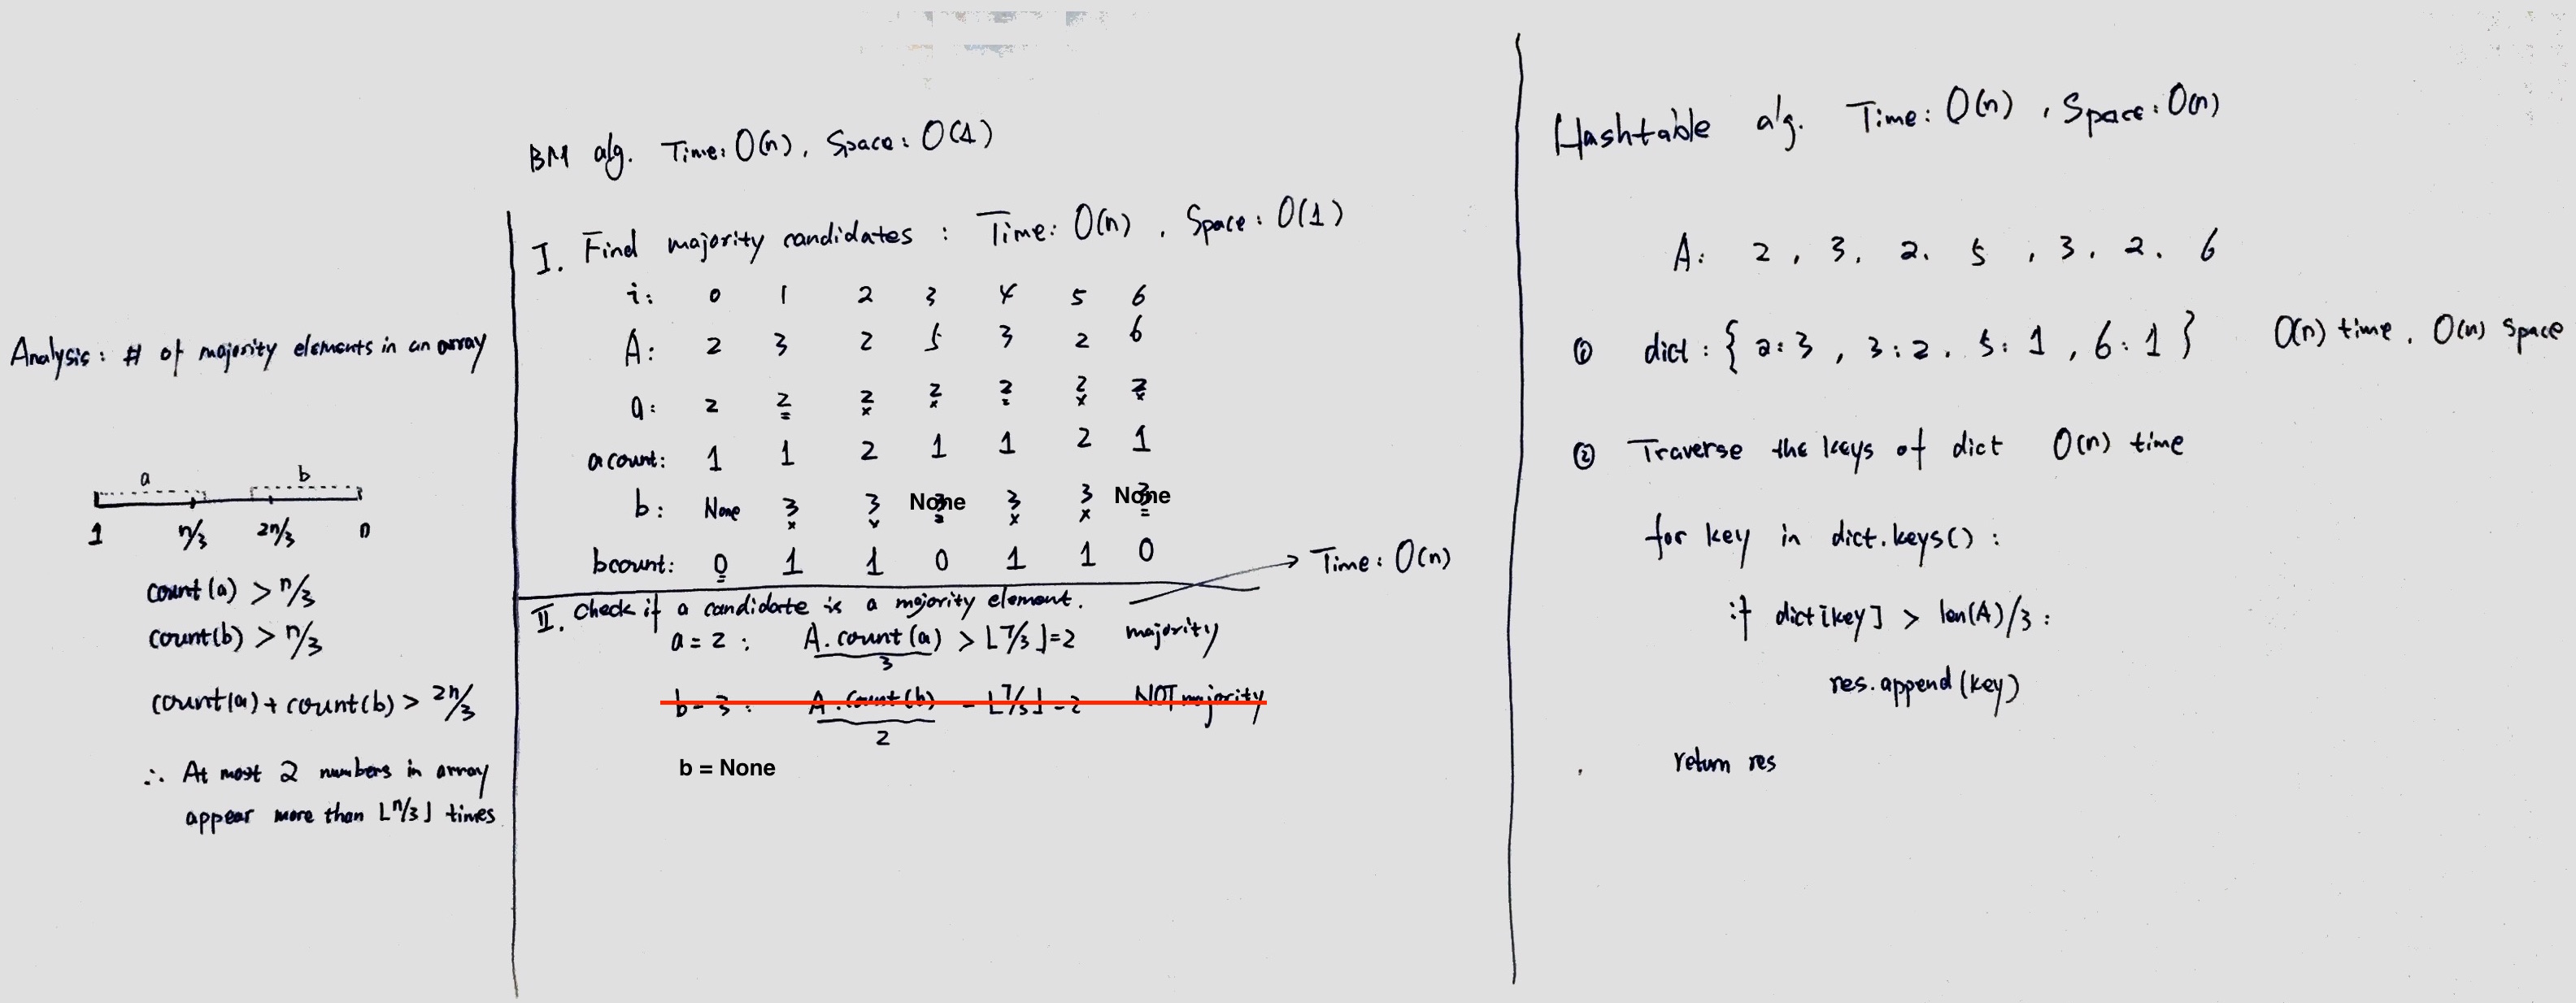 Analysis: # of majority elements in an array
a b
1 n/3 2n/3 n
count(a) > n/3
count(b) > n/3
count(a) + count(b) > 2n/3
∴ At most 2 numbers in array
appear more than ⌊n/3⌋ times
BM alg. Time: O(n), Space: O(1)
I. Find majority candidates : Time: O(n) , Space: O(1)
i: 0 1 2 3 4 5 6
A: 2 3 2 5 3 2 6
a: 2 2 2 2 2 2 2
acount: 1 1 2 1 1 2 1
b: None 3 3 None 3 3 None
bcount: 0 1 1 0 1 1 0
Time: O(n)
II. Check if a candidate is a majority element.
a = 2 : A.count(a) > ⌊7/3⌋=2 majority
3
b = 3 : A.count(b) = ⌊7/3⌋=2 NOT majority
2
b = None
Hashtable alg. Time: O(n) , Space: O(n)
A: 2 , 3, 2. 5 , 3. 2. 6
① dict : { 2:3 , 3:2. 5:1 , 6:1 } O(n) time. O(n) space
② Traverse the keys of dict O(n) time
for key in dict.keys() :
if dict[key] > len(A)/3 :
res.append(key)
return res